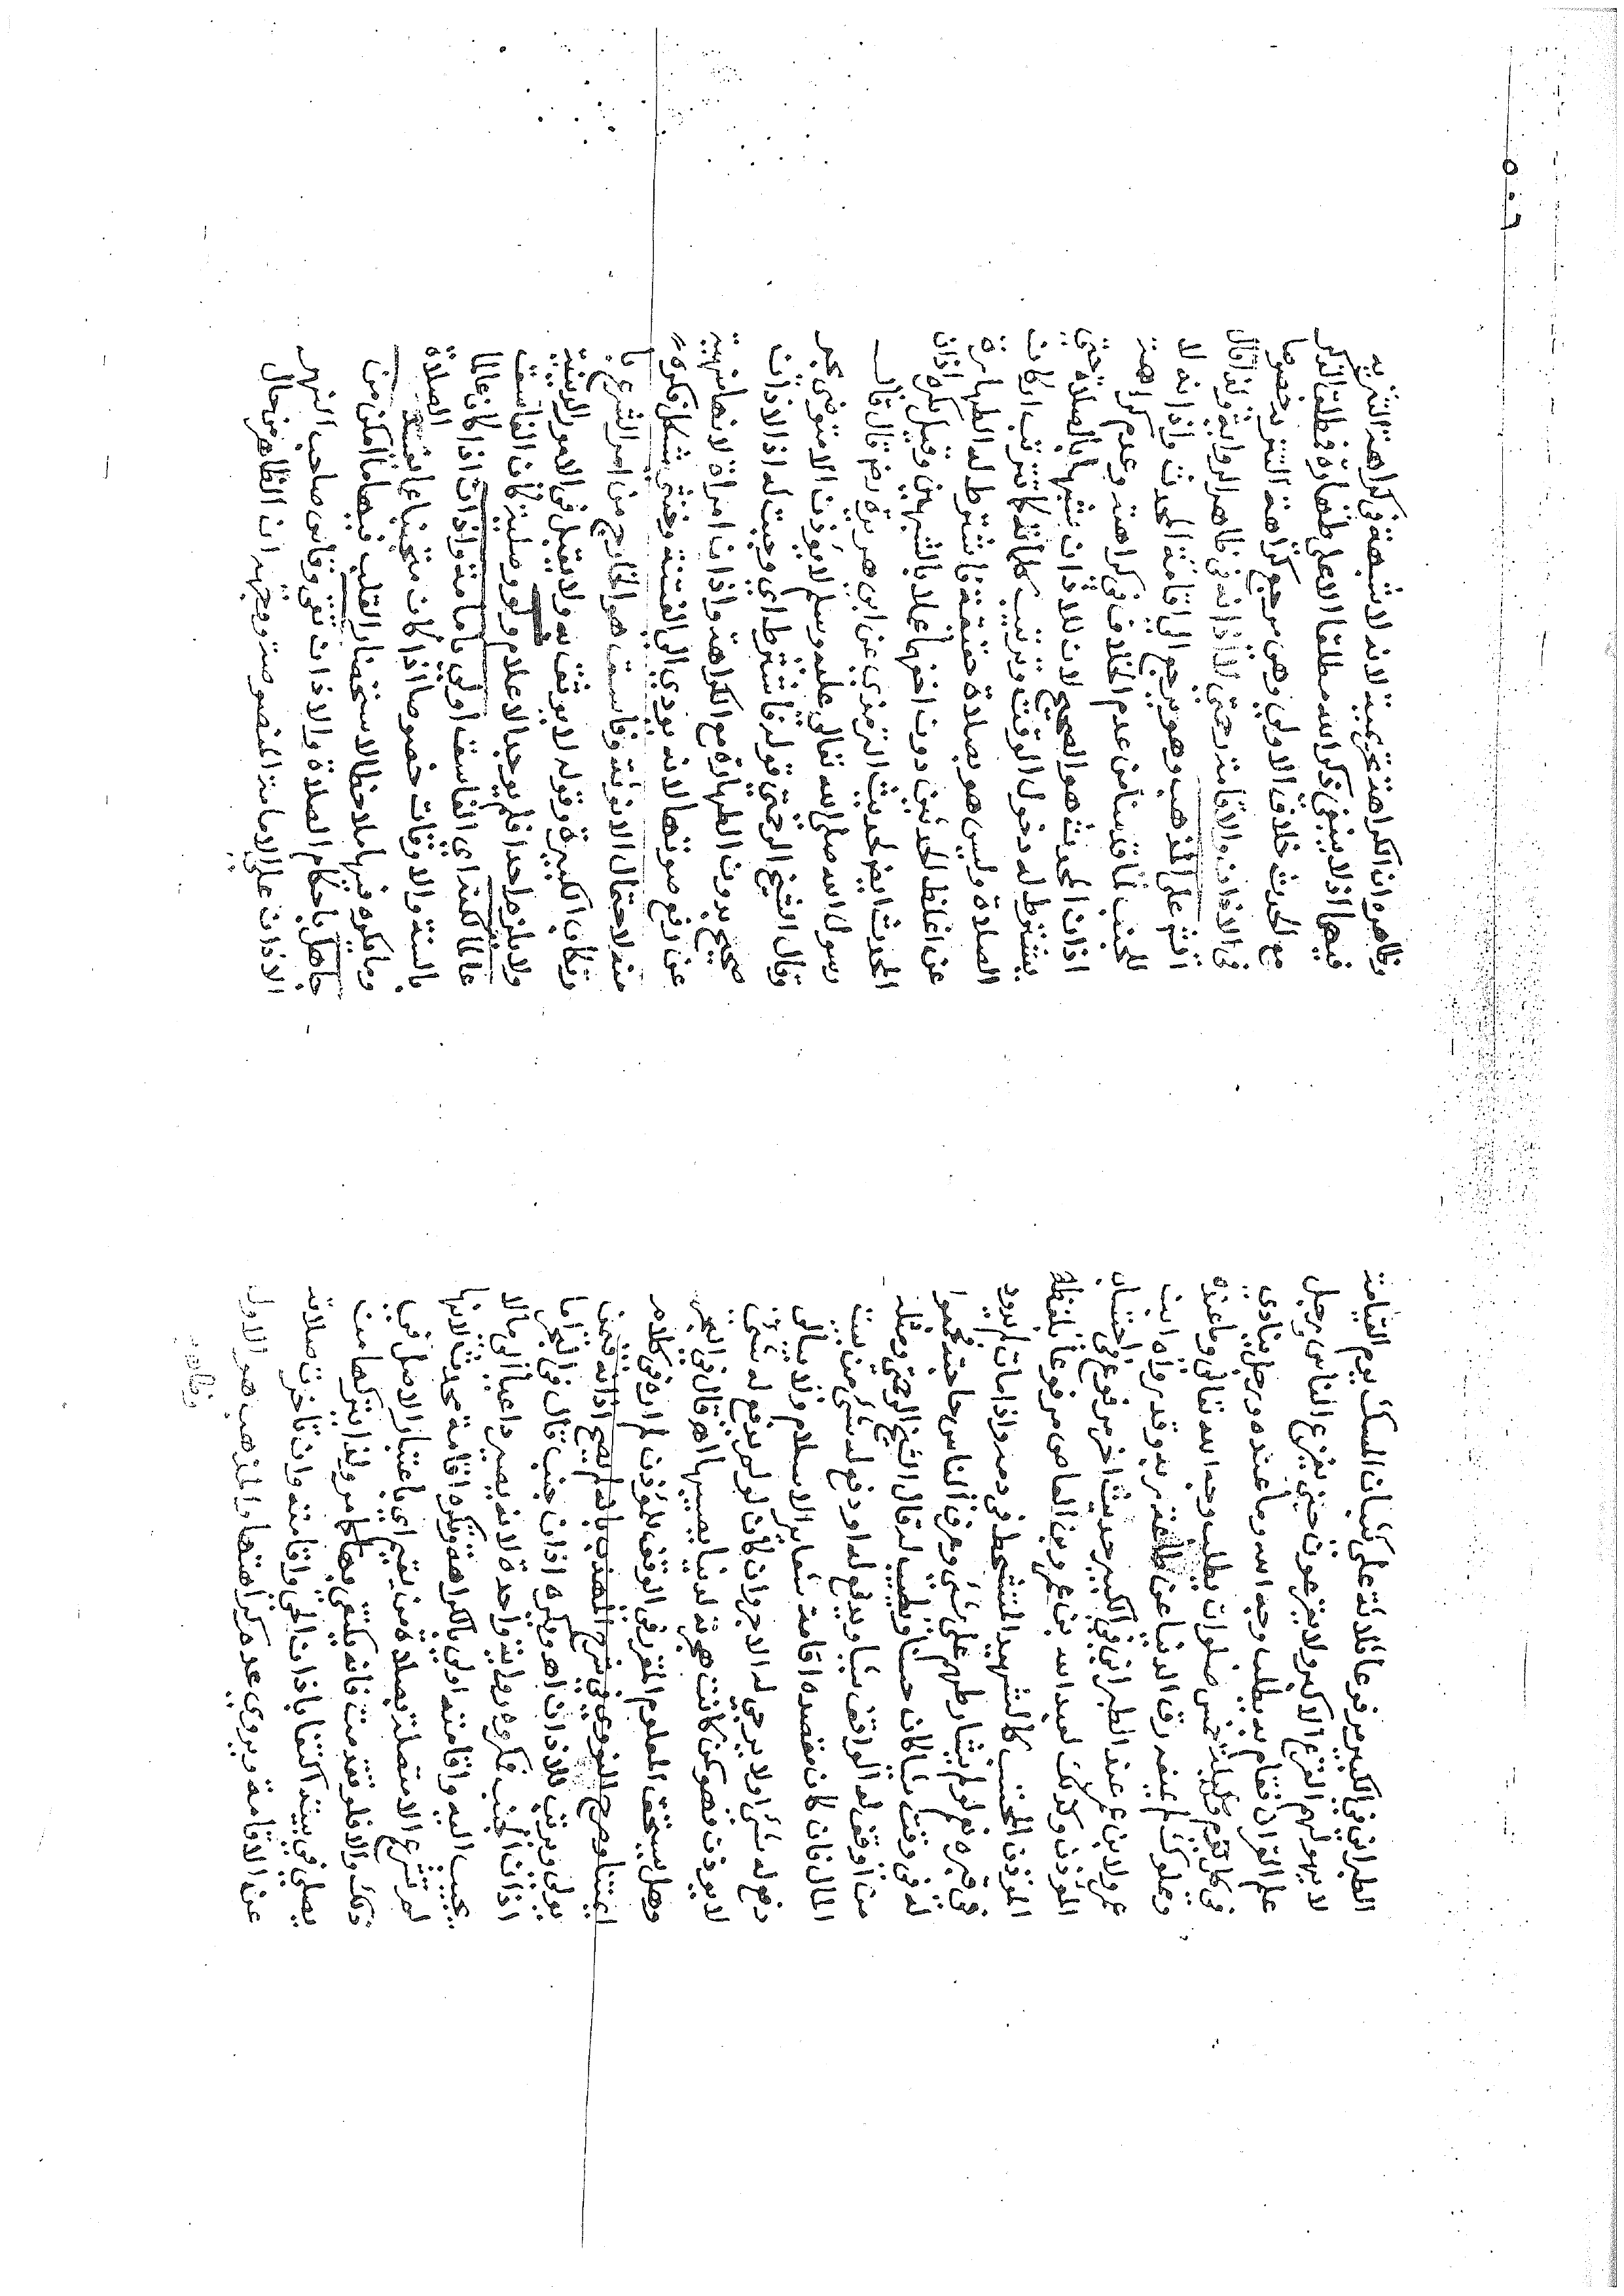 الطبراني في الكبير مرفوعا ثلاثة على كثبان المسك يوم القيامة
لا يهولهم الفزع الاكبر ولا يفزعون حين يفزع الناس رجل
علم القران فقام به يطلب وجه الله وما عنده ورجل ينادي
في كل يوم وليلة خمس صلوات يطلب وجه الله تعالى وما عنده
ومملوك لم يمنعه رق الدنيا عن طاعة ربه وقد رواه ابن
عمر ولابن عمر عند الطبراني في الكبير حديث اخر مرفوع في احتساب
المؤذن وكذلك لعبد الله بن عمرو بن العاص مرفوعا بلفظ
المؤذن المحتسب كالشهيد المتشحط في دمه واذا مات لم يدود
في قبره نعم لو لم يشارطهم على شئ وعرف الناس حاجته فجمعوا
له في وقت شيئا كان حسنا ويطيب له قال الشيخ الرحمتي ومثله
من اوقف له الواقف شيئا ويدفع له او دفع له شئ من بيت
المال فان كان مقصده اقامة شعاير الاسلام ولا يبالي
دفع له شئ اولا يرجى له الاجر وان كان لو لم يدفع له شئ
لا يؤذن فهو كمن كانت هجرته لدنيا يصيبها اهـ قال في البحر
وهل يستحق المعلوم المقرر في الوقف للمؤذن لم اره في كلام
ائمتنا وصرح النووي في شرح المهذب بانه لم يصح اذانه فيمن
يولى ويرتب للاذان اهـ ويكره اذان جنب قال في البحر اما
اذان الجنب فمكروه رواية واحدة لانه يصير داعيا الى ما لا
يجيب اليه واقامته اولى بالكراهة وتكره اقامة محدث لانها
لم تشرع الا متصلة بصلاة من يقيم اي باعتبار الاصل في
ذلك والا فلو تقدمت فانه يكتفى بها كما مر ولذا يتركها من
يصلي في بيته اكتفا باذان الحي واقامته وان تاخرت صلاته
عن الاقامة ويروى عدم كراهتها والمذهب هو الاول
وظاهره ان الكراهة تحريمية لانه لا شبهة في كراهة التنزيه
فيها اذ لا ينبغي ذكر الله مطلقا الا على طهارة فمطلق الذكر
مع الحدث خلاف الاولى وهي مرجع كراهة التنزيه خصوصا
في الاذان والاقامة لا اذانه في ظاهر الرواية ولذا قال
على المذهب وهو يرجع الى اقامة المحدث واذانه لا
للجنب لما قدمنا من عدم الخلاف في كراهته وعدم كراهة
اذان المحدث هو الصحيح لان للاذان شبها بالصلاة حتى
يشترط له دخول الوقت وترتيب كلماته كما ترتبت اركان
الصلاة وليس هو بصلاة حقيقة فاشترط له الطهارة
عن اغلظ الحدثين دون اخفهما عملا بالشبهين وقيل يكره اذان
المحدث ايضا لحديث الترمذي عن ابي هريرة رض قال قال
رسول الله صلى الله تعالى عليه وسلم لا يؤذن الا متوضئ بحر
وقال الشيخ الرحمتي قوله فاشترط اي وجبت له اذ الاذان
صحيح بدون الطهارة مع الكراهة واذان امراة لانها منهية
عن رفع صوتها لانه يؤدي الى الفتنة وخنثى مشكل فكره
منه لاحتمال الانوثة وفاسق هو الخارج من امر الشرع
الكبيرة وقوله لا يوثق به ولا يقبل في الامور الدينية
ولا يلزم احدا فلم يوجد الاعلام ولو وصلية كان الفاسق
عالما لكنه اي الفاسق اولى بامامة واذان اذا كان عالما
بالسنة والاوقات خصوصا اذا كان متجنبا عما يفسد الصلاة
وما يكره فيها ملاحظا لاستحضار القلب فيها ما امكن من
جاهل باحكام الصلاة والاذان تقي وقاس صاحب النهر
الاذان على الامامة المنصوصة وجهه ان الظاهر من حال